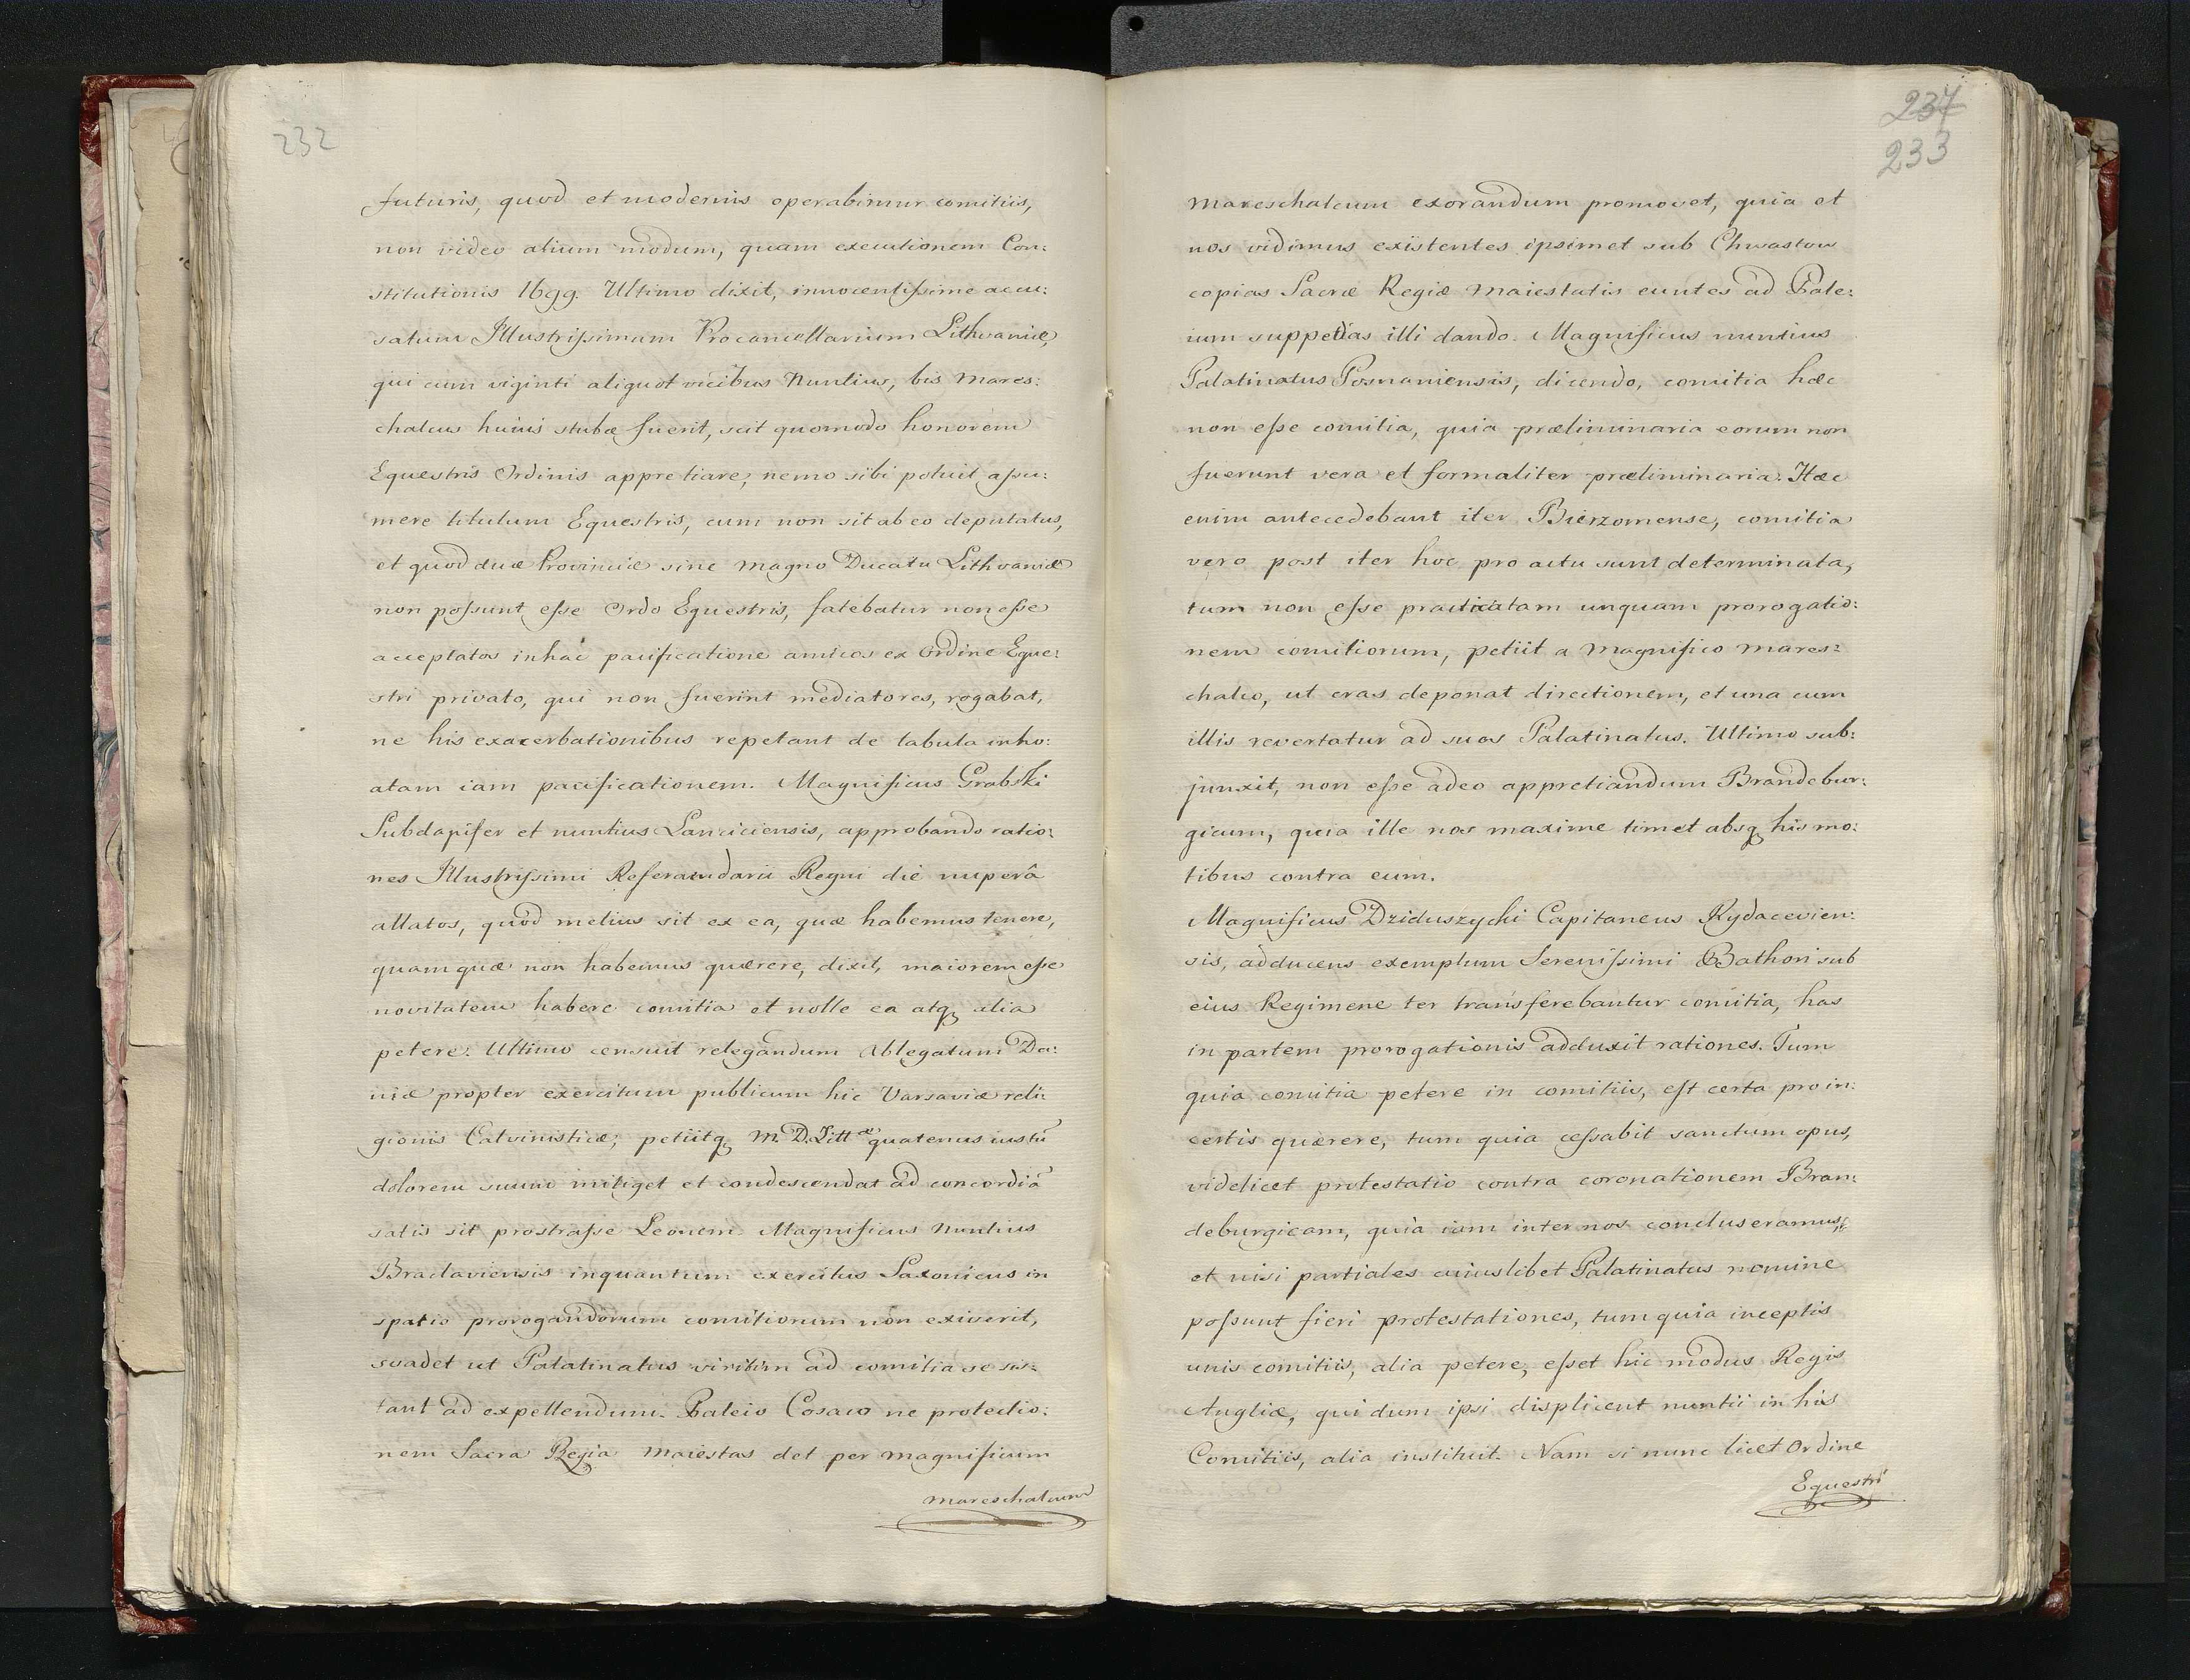 232
futuris, quod et modernis operabimur comitiis,
non video alium modum, quam executionem Con:
stitutionis 1699. Ultimo dixit, innocentissime accu:
satum Illustrissimum Procancellarium Lithvaniæ,
qui cum viginti aliquot vicibus Nuntius, bis Mares:
chalcus huius stubæ fuerit, scit quomodo honorem
Equestris Ordinis appretiare, nemo sibi potuit assu:
mere titulum Equestris, cum non sit ab eo deputatus,
et quod duæ Provinciæ sine Magno Ducatu Lithvaniæ
non possunt esse Ordo Equestris, fatebatur non esse
acceptatos in hac pacificatione amicos ex Ordine Eque:
stri privato, qui non fuerint mediatores, rogabat,
ne his exacerbationibus repetant de tabula inho:
atam iam pacificationem. Magnificus Grabski
Subdapifer et nuntius Lanciciensis, approbando ratio:
nes Illustrissimi Referandarii Regni die nuperâ
allatos, quod melius sit ex ea, quæ habemus tenere,
quam quæ non habemus quærere, dixit, maiorem esse
novitatem habere comitia et nolle ea atq alia
petere. Ultimo censuit relegandum Ablegatum Da:
niæ propter exercitum publicum hic Varsaviæ reli:
gionis Calvinisticæ, petiitq M. D. Littæ quatenus iustū
dolorem suum mitiget et condescendat ad concordiā
satis sit prostrasse Leonem. Magnificus Nuntius
Braclaviensis inquantum exercitus Saxonicus in
spatio prorogandorum comitiorum non exiverit,
svadet ut Palatinatus viritim ad comitia se sis:
tant ad expellendum. Paleio Cosaco ne protectio:
nem Sacra Regia Maiestas det per Magnificum
Mareschalcum
237
233
Mareschalcum exorandum promovet, quia et
nos vidimus existentes ipsimet sub Chwastow
copias Sacræ Regiæ Maiestatis euntes ad Pale:
ium suppetias illi dando. Magnificus nuntius
Palatinatus Posnaniensis, dicendo, comitia hæc
non esse comitia, quia præliminaria eorum non
fuerunt vera et formaliter præliminaria. Hæc
enim antecedebant iter Bierzomense, comitia
vero post iter hoc pro actu sunt determinata,
tum non esse practicatam unquam prorogatio:
nem comitiorum, petiit a Magnifico Mares:
chalco, ut cras deponat directionem, et una cum
illis revertatur ad suos Palatinatus. Ultimo sub:
junxit, non esse adeo appretiandum Brandebur:
gicum, quia ille nos maxime timet absq his mo:
tibus contra eum.
Magnificus Dziduszycki Capitaneus Rydacevien:
sis, adducens exemplum Serenissimi Bathori sub
eius Regimene ter transferebantur comitia, has
in partem prorogationis adduxit rationes. Tum
quia comitia petere in comitiis, est certa pro in:
certis quærere, tum quia cessabit sanctum opus,
videlicet protestatio contra coronationem Bran:
deburgicam, quia iam inter nos concluseramus,
et nisi partiales cuiuslibet Palatinatus nomine
possunt fieri protestationes, tum quia inceptis
unis comitiis, alia petere, esset hic modus Regis
Angliæ, qui dum ipsi displicent nuntii in his
Comitiis, alia instituit. Nam si nunc licet Ordine
Equestri